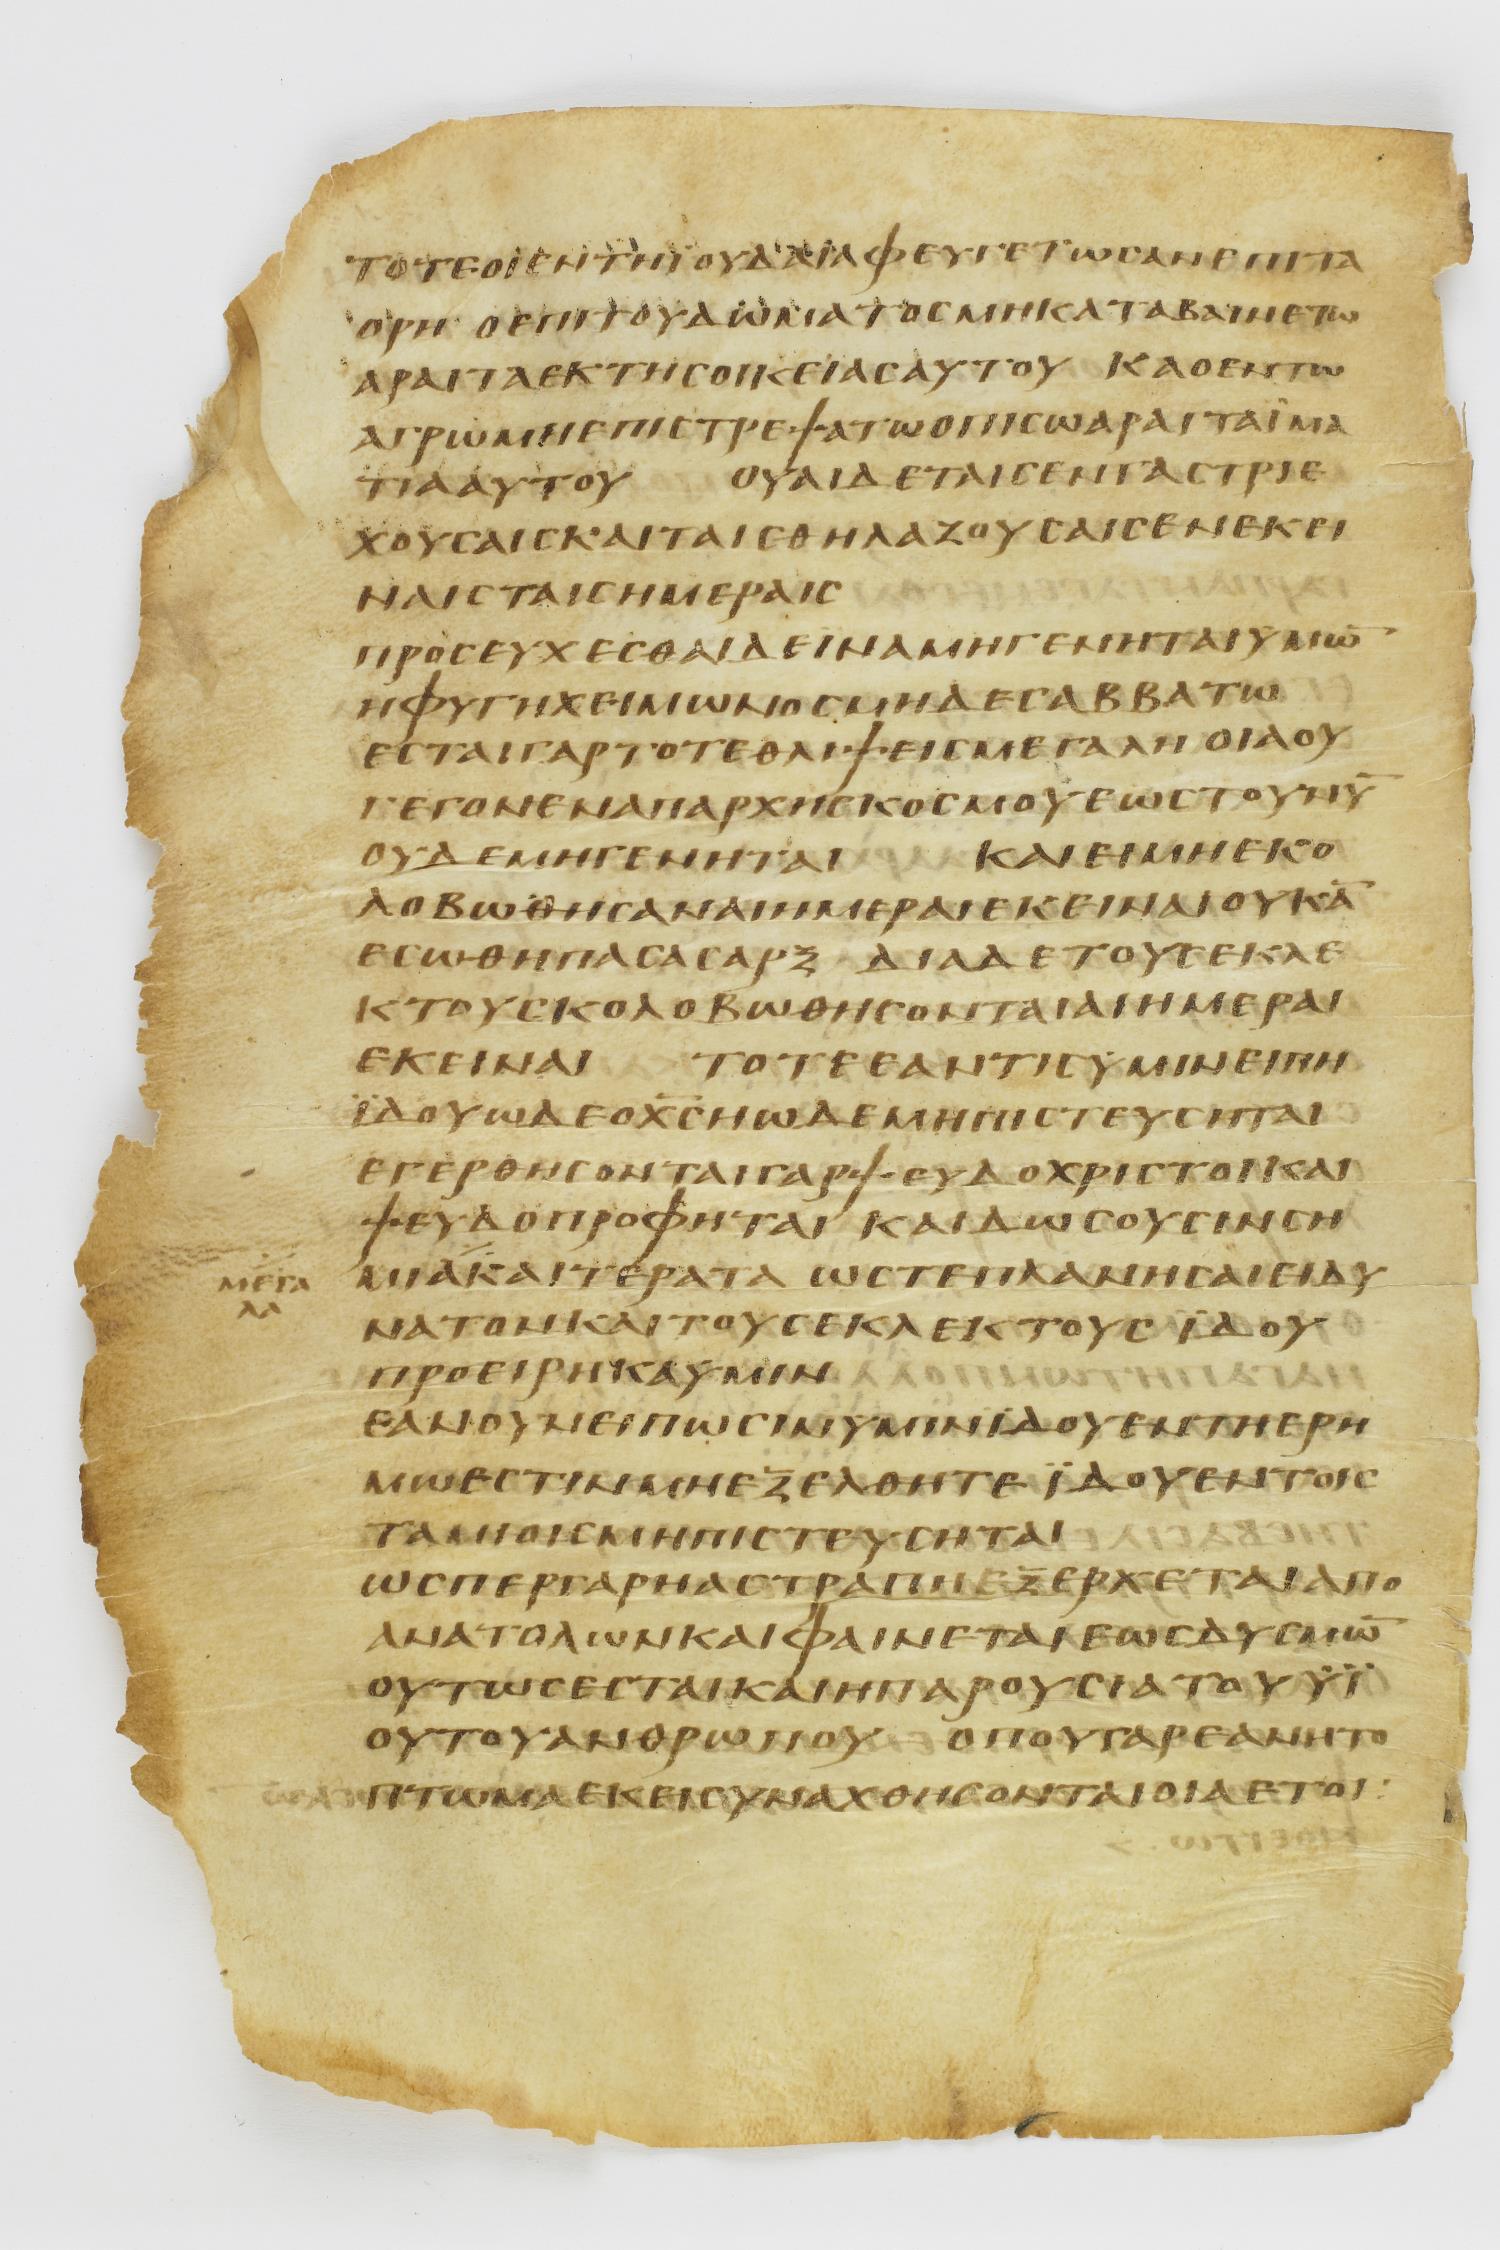 ΤΟΤΕΟΙΕΝΤΗΙΟΥΔΑΙΑΦΕΥΓΕΤΩCΑΝΕΠΙΤΑ
ΟΡΗ ΟΕΠΙΤΟΥΔΩΜΑΤΟCΜΗΚΑΤΑΒΑΙΝΕΤΩ
ΑΡΑΙΤΑΕΚΤΗCΟΙΚΕΙΑCΑΥΤΟΥ ΚΑΟΕΝΤΩ
ΑΓΡΩΜΗΕΠΙCΤΡΕΨΑΤΩΟΠΙCΩΑΡΑΙΤΑΪΜΑ
ΤΙΑΑΥΤΟΥ ΟΥΑΙΔΕΤΑΙCΕΝΓΑCΤΡΙΕ
ΧΟΥCΑΙCΚΑΙΤΑΙCΘΗΛΑΖΟΥCΑΙCΕΝΕΚΕΙ
ΝΑΙCΤΑΙCΗΜΕΡΑΙC
ΠΡΟCΕΥΧΕCΘΑΙΔΕΙΝΑΜΗΓΕΝΗΤΑΙΥΜΩ̅
ΗΦΥΓΗΧΕΙΜΩΝΟCΜΗΔΕCΑΒΒΑΤΩ
ΕCΤΑΙΓΑΡΤΟΤΕΘΛΙΨΕΙCΜΕΓΑΛΗ ΟΙΑΟΥ
ΓΕΓΟΝΕΝΑΠΑΡΧΗCΚΟCΜΟΥΕΩCΤΟΥΝΥ̅
ΟΥΔΕΜΗΓΕΝΗΤΑΙ ΚΑΙΕΙΜΗΕΚΟ
ΛΟΒΩΘΗCΑΝΑΙΗΜΕΡΑΙΕΚΕΙΝΑΙΟΥΚΑ̅
ΕCΩΘΗΠΑCΑCΑΡΞ ΔΙΑΔΕΤΟΥCΕΚΛΕ
ΚΤΟΥCΚΟΛΟΒΩΘΗCΟΝΤΑΙΑΙΗΜΕΡΑΙ
ΕΚΕΙΝΑΙ ΤΟΤΕΕΑΝΤΙCΥΜΙΝΕΙΠΗ
ΪΔΟΥΩΔΕΟΧ̅C̅ΗΩΔΕΜΗΠΙCΤΕΥCΗΤΑΙ
ΕΓΕΡΘΗCΟΝΤΑΙΓΑΡΨΕΥΔΟΧΡΙCΤΟΙΚΑΙ
ΨΕΥΔΟΠΡΟΦΗΤΑΙ ΚΑΙΔΩCΟΥCΙΝCΗ
ΜΙΑΚΑΙΤΕΡΑΤΑ ΩCΤΕΠΛΑΝΗCΑΙΕΙΔΥ
ΜΕΓΑ
ΛΑ
ΝΑΤΟΝΚΑΙΤΟΥCΕΚΛΕΚΤΟΥC ΪΔΟΥ
ΠΡΟΕΙΡΗΚΑΥΜΙΝ
ΕΑΝΟΥΝΕΙΠΩCΙΝΥΜΙΝΪΔΟΥΕΝΤΗΕΡΗ
ΜΩΕCΤΙΝΜΗΕΞΕΛΘΗΤΕ ΪΔΟΥΕΝΤΟΙC
ΤΑΜΙΟΙCΜΗΠΙCΤΕΥCΗΤΑΙ
ΩCΠΕΡΓΑΡΗΑCΤΡΑΠΗΕΞΕΡΧΕΤΑΙΑΠΟ
ΑΝΑΤΟΛΩΝΚΑΙΦΑΙΝΕΤΑΙΕΩCΔΥCΜΩ̅
ΟΥΤΩCΕCΤΑΙΚΑΙΗΠΑΡΟΥCΙΑΤΟΥΫΪ
ΟΥΤΟΥΑΝΘΡΩΠΟΥ ΟΠΟΥΓΑΡΕΑΝΗΤΟ
ΠΤΩΜΑΕΚΕΙCΥΝΑΧΘΗCΟΝΤΑΙΟΙΑΕΤΟΙ: